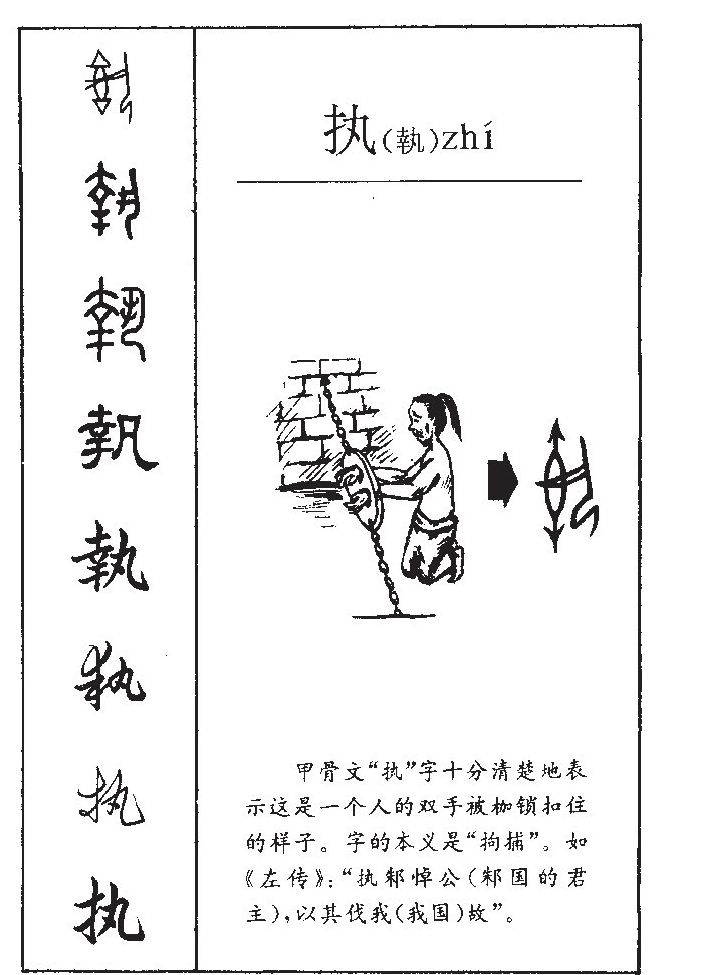 执(執)zhí
執
執
執
执
执
执
甲骨文“执”字十分清楚地表
示这是一个人的双手被枷锁扣住
的样子。字的本义是“拘捕”。如
《左传》:“执邾悼公(邾国的君
主),以其伐我(我国)故”。